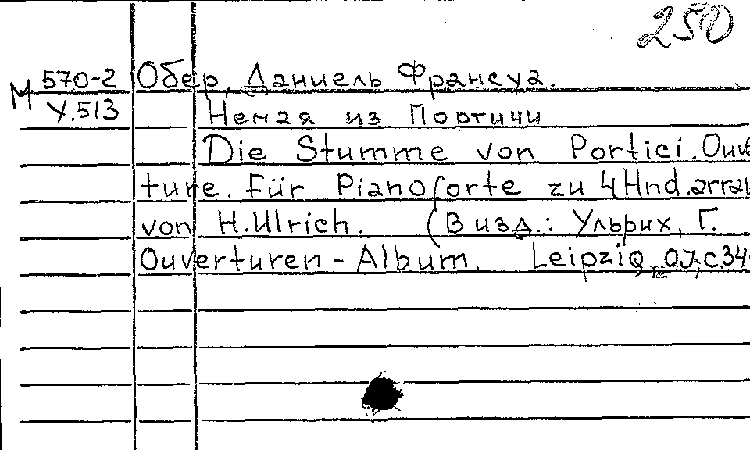 250
М 570-2
У.513
Обер, Даниель Франсуа.
Немая из Портичи
Die Stumme von Portici. Ouve
ture. Für Pianoforte zu 4 Hnd. arra
von H. Ulrich. (В изд.: Ульрих, Г.
Ouverturen - Album. Leipzig, o.J., с. 34-